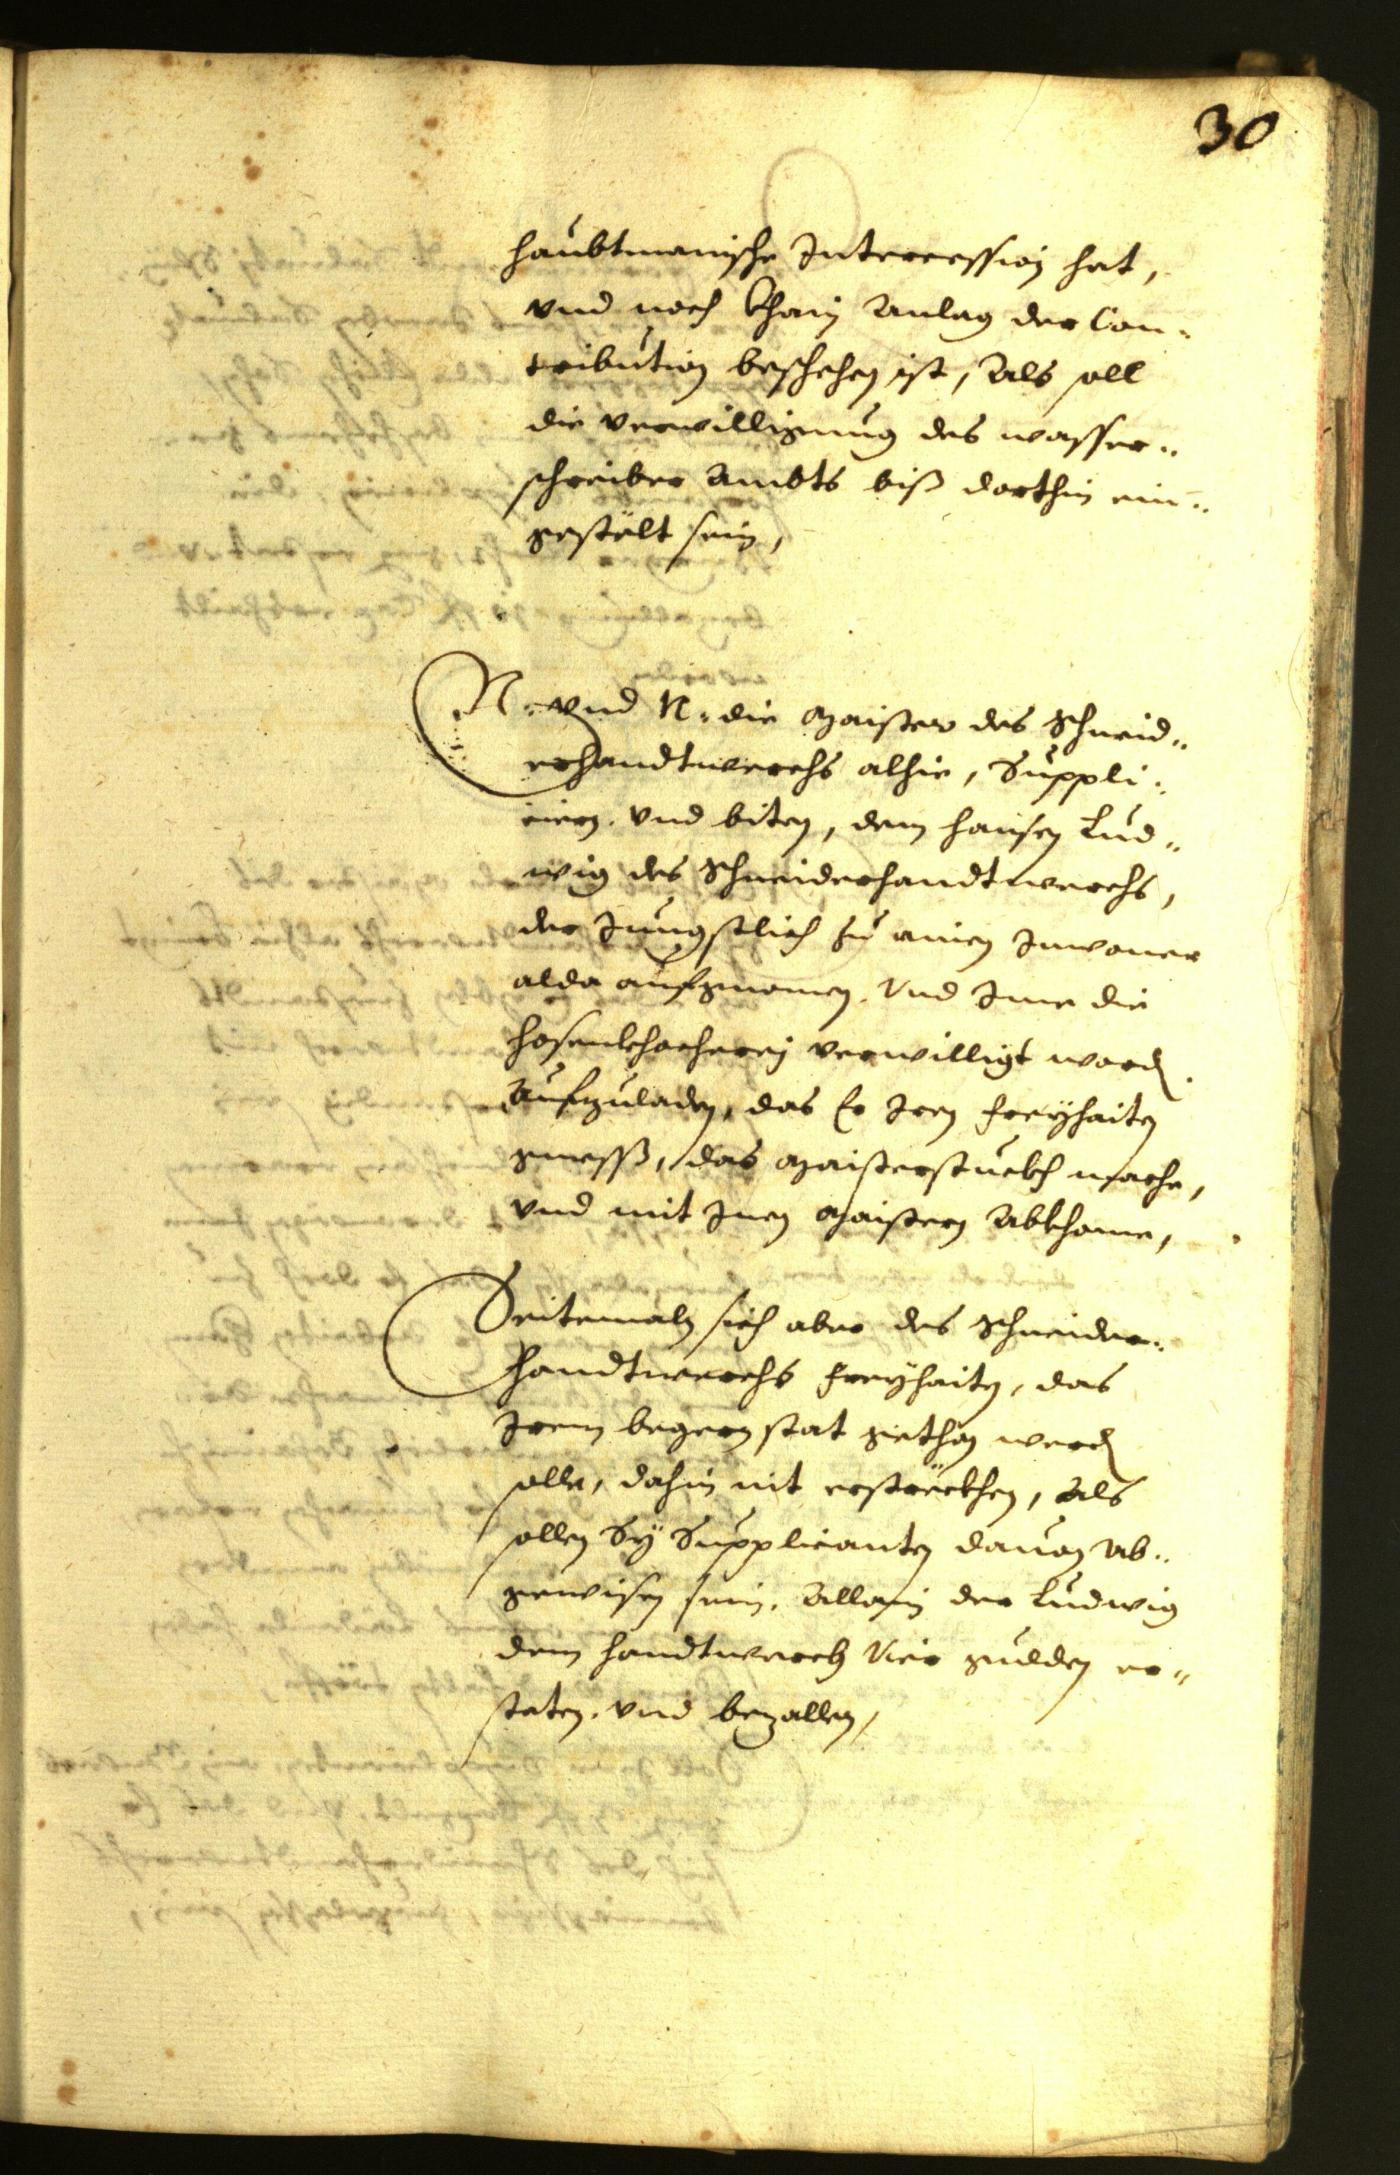 30
haubtmanische Intercession hat,
vnd noch khain Anlag der Con-
tribution beschehen ist, Als soll
die verwilligung des wasser-
schreiber Ambts biß dorthin ein-
gestelt sein,
N. vnd N. die Maister des Schneid-
erhandtwerchs alhie, Suppli-
ciern vnd biten, dem Hansen Lud-
wig des Schneiderhandtwerchs,
der Jungstlich zu ainen Inwoner
alda aufgnomen, Vnd Ime die
hosenkhocherey verwilligt word.
Aufzuladen, das Er Iren freyhaiten
gmeß, das Maisterstuckh mache,
vnd mit Inen Maistern Abkhome,
Seitemaln sich aber des Schneider-
handtwerchs freyhaiten, das
Irem begern stat gethan werd
solle, dahin nit erströckhen, Als
sollen Sy Supplicanten dauon Ab-
gewisen sein, Allain der Ludwig
dem handtwerch Vier gulden er-
staten, vnd bezallen,